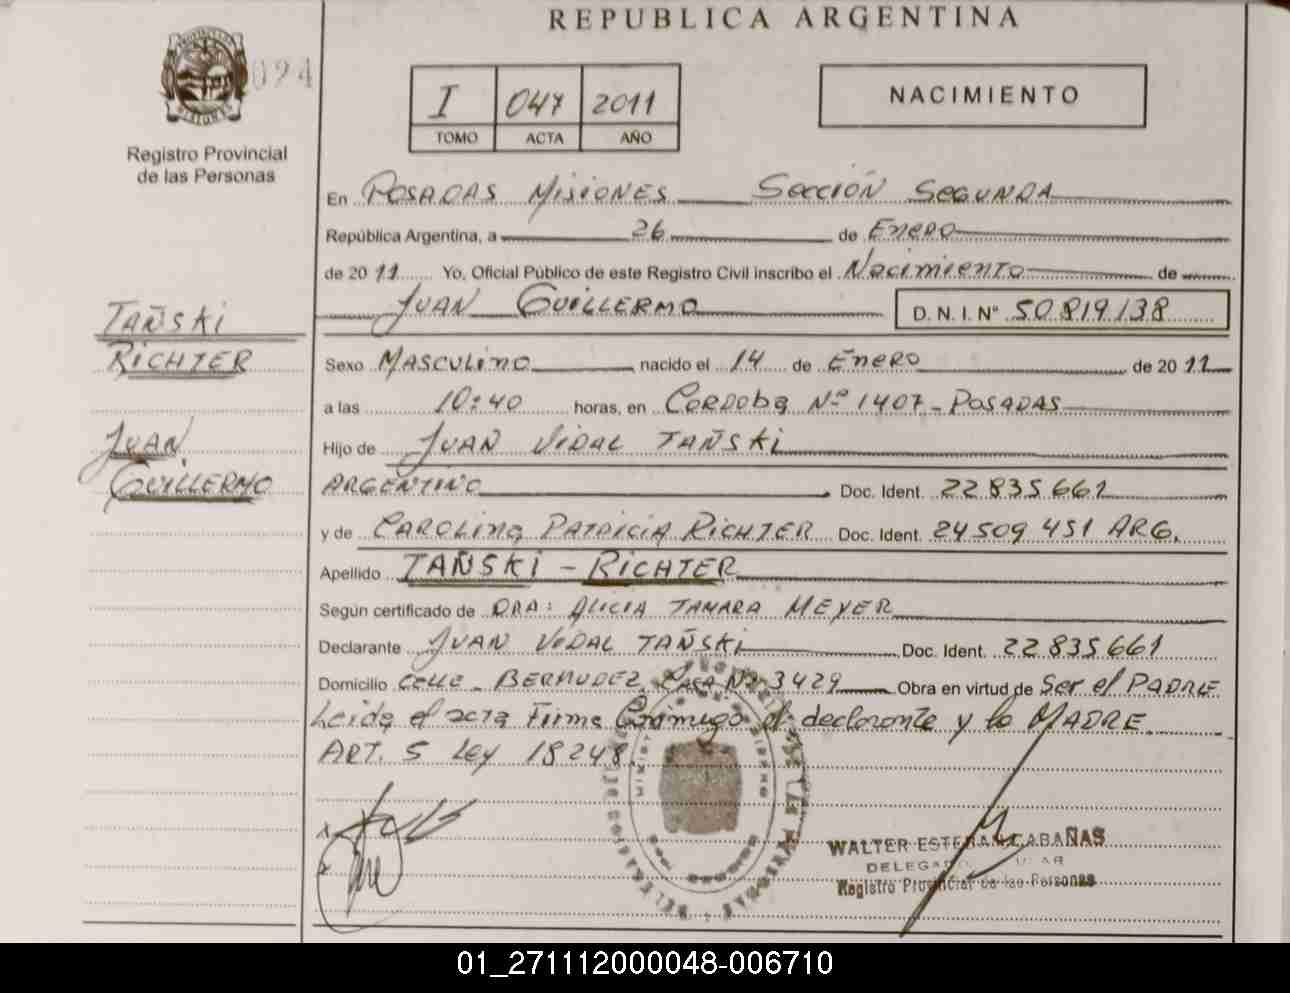 REPUBLICA ARGENTINA
094
I 047 2011
TOMO ACTA AÑO
NACIMIENTO
Registro Provincial
de las Personas
En POSADAS MISIONES SECCIÓN SEGUNDA
República Argentina, a 26 de ENERO
de 2011 Yo, Oficial Público de este Registro Civil inscribo el Nacimiento de
JUAN GUILLERMO D. N. I. Nº 50.819.138
TAÑSKI
RICHTER
JUAN
GUILLERMO
Sexo MASCULINO nacido el 14 de ENERO de 2011
a las 10:40 horas, en CORDOBA Nº 1407 - POSADAS
Hijo de JUAN VIDAL TAÑSKI
ARGENTINO Doc. Ident. 22 835 661
y de CAROLINA PATRICIA RICHTER Doc. Ident. 24 509 451 ARG.
Apellido TAÑSKI - RICHTER
Según certificado de DRA: ALICIA TAMARA MEYER
Declarante JUAN VIDAL TAÑSKI Doc. Ident. 22 835 661
Domicilio CALLE BERMUDEZ CASA Nº 3429 Obra en virtud de Ser el PADRE
Leida el acta Firma Conmigo el declarante y la MADRE.
ART. 5 Ley 18248.
WALTER ESTEBAN CABAÑAS
Registro Provincial de las Personas
01_271112000048-006710